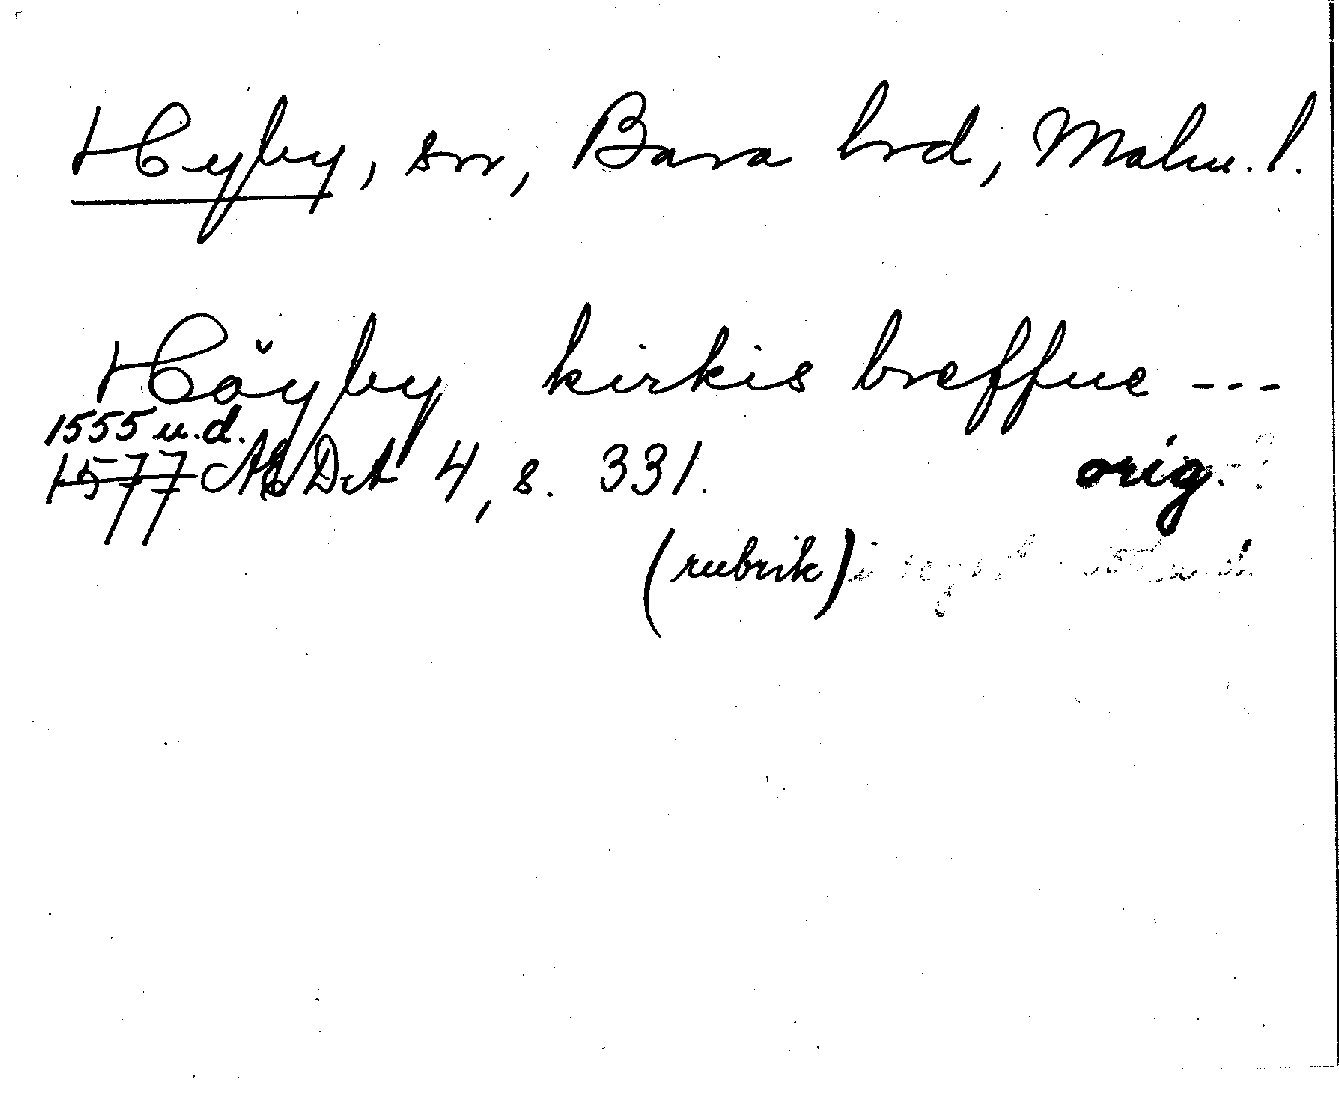 Hyby, sn, Bara hrd, Malm. l.
Höyby kirkis breffue ---
1555 u.d.
1577 ÆDA 4, s. 331. orig.
(rubrik)